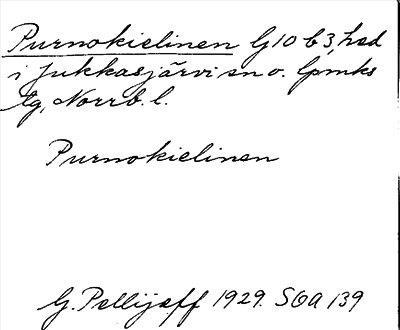 Purnokielinen G10 b3, hsd
i Jukkasjärvi sn o. lpmks
tg, Norrb. l.
Purnokielinen
G. Pellijeff 1929. SOA 139